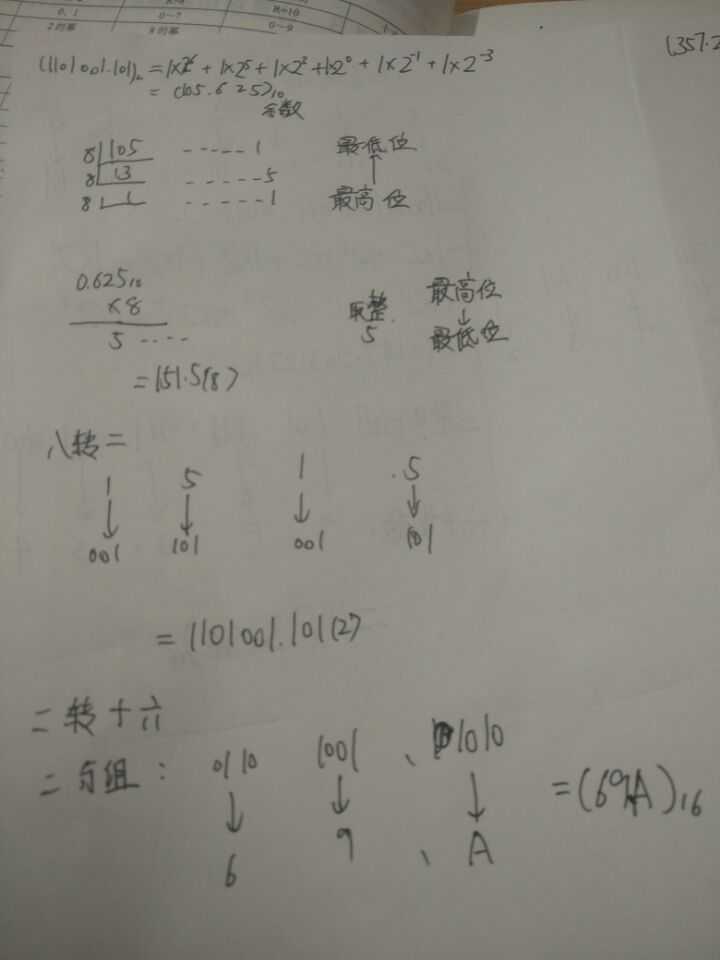 0, 1 0~7 R=16 0~9
2的幂 8的幂
(1101001.101)₂ = 1×2⁶ + 1×2⁵ + 1×2³ + 1×2⁰ + 1×2⁻¹ + 1×2⁻³
(357.2
= (105.625)₁₀
余数
8 105 ----- 1 最低位
8 13 ----- 5 ↑
8 1 ----- 1 最高位
0.625₁₀
×8 取整 最高位
5 ···· 5 ↓
最低位
= 151.5(8)
八转二
1 5 1 .5
↓ ↓ ↓ ↓
001 101 001 101
= 1101001.101(2)
二转十六
二与组: 0110 1001 、 1010
↓ ↓ ↓ = (69.A)₁₆
6 9 、 A